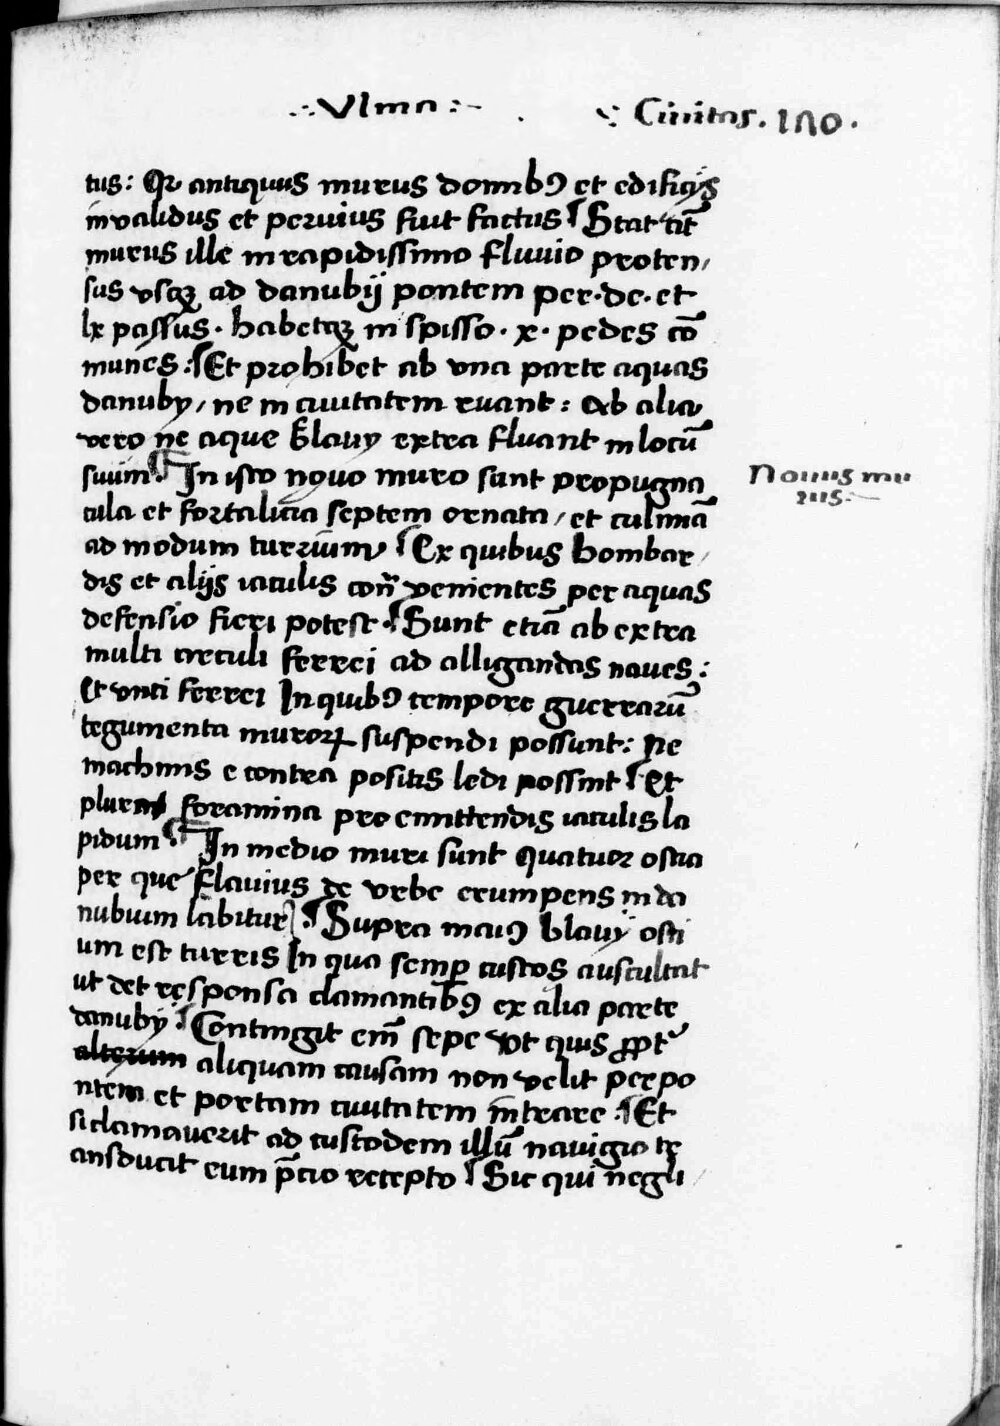 ∴ Vlma :~ ∵ Ciuitas. 180.
tus: Qr antiquus murus domibꝰ et edificijs
inualidus et peruius fuit factus ¶ Stat tn̄
murus ille in rapidissimo fluuio proten⸗
sus vsqꝫ ad danubij pontem per·dc·et
lx passus · habetqꝫ in spisso · x · pedes cō
munes : ¶ Et prohibet ab vna parte aquas
danuby / ne in ciuitatem ruant : Ab alia
vero ne aque blauy extra fluant in locū
suum ¶ In isto nouo muro sunt propugna
cula et fortalicia septem ornata / et culmīa
ad modum turrium ¶ Ex quibus bombar⸗
dis et alijs iaculis con̄ venientes per aquas
defensio fieri potest · ¶ Sunt etiā ab extra
multi circuli ferrei ad alligandas naues :
Et vnci ferrei In quibꝰ tempore guerrarū
tegumenta muroꝝ suspendi possunt : Ne
machinis e contra positis ledi possint ¶ Et
plura foramina pro emittendis iaculis la
pidum ¶ In medio muri sunt quatuor ostia
per que flauius de vrbe erumpens in da
nubium labitur · ¶ Supra maiꝰ blauij osti
um est turris In qua semꝑ custos auscultat
ut det responsa clamantibꝰ ex alia parte
danubij ¶ Contingit em̄ sepe vt quis ꝓpt̄
alterum aliquam causam non velit per po
ntem et portam ciuitatem intrare : ¶ Et
si clamauerit ad custodem illū nauigio tr
ansducit eum p̄cio recepto ¶ Sic qui negli⸗
Nouus mu
rus :~